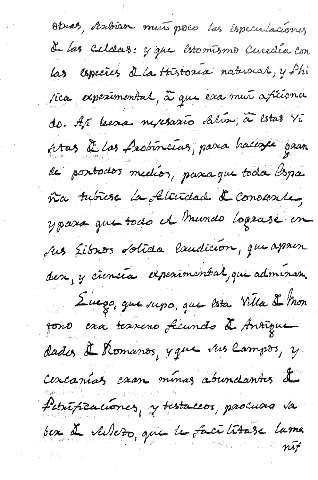 otras, subian mui poco las especulaciónes
de las Celdas: y que esto mismo Cucedia con
las especies de la Historia natural, y Phi
sica experimental, à que era mui aficiona
do. Asi le era nesesario salir, à estas Vi
sitas de las Probincias, para hacerse gran
de por todos medios, para que toda Espa
ña tubiese la felicidad de Conocerle,
y para que todo el Mundo lograse en
sus Libros solida Erudición, que apren
der, y ciencia experimental, que admirar.
Luego, que supo, que esta Villa de Mon
toro era terreno fecundo de Antigue
dades de Romanos, y que sus Campos, y
cercanias eran minas abundantes de
Petrificaciones, y testaceos, procuro sa
ber de sujeto, que le facilitase la ma
nif